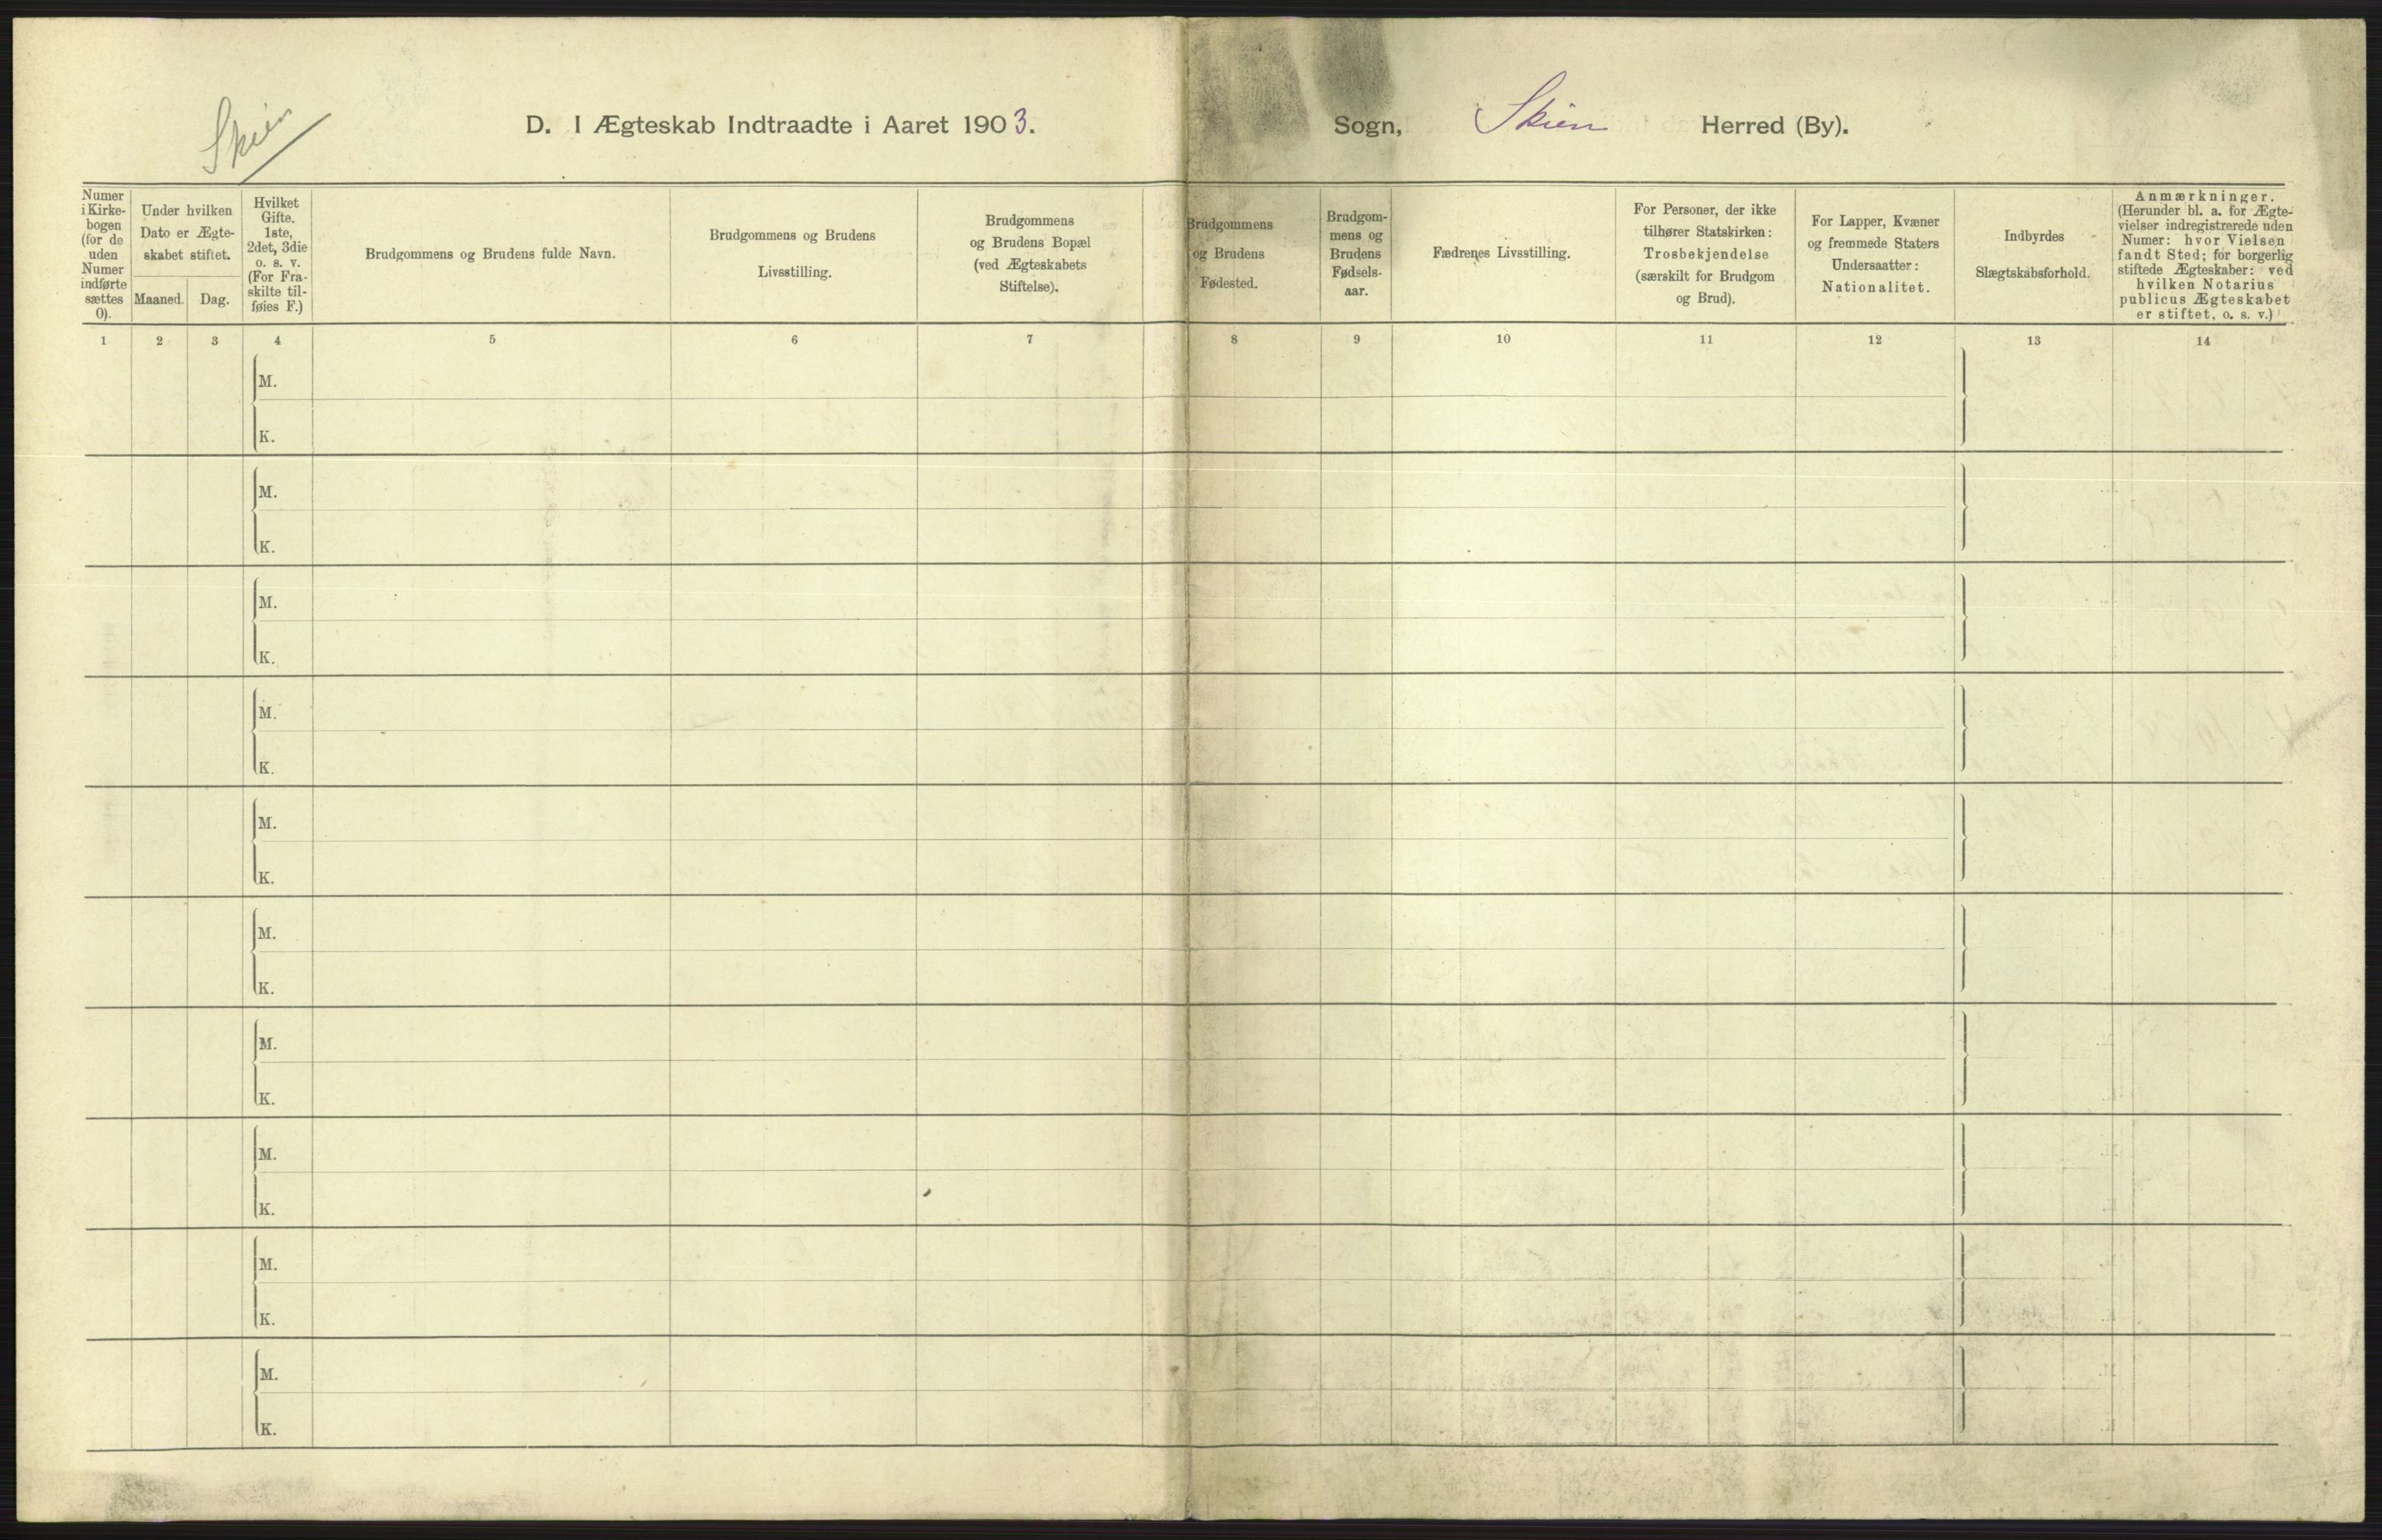 Skien
D. I Ægteskab Indtraadte i Aaret 1903.
Sogn, Skien Herred (By).
Numer
i Kirke-
bogen
(for de
uden
Numer
indførte
sættes
0).
Under hvilken
Dato er Ægte-
skabet stiftet.
Maaned.
Dag.
Hvilket
Gifte.
1ste,
2det, 3die
o. s. v.
(For Fra-
skilte til-
føies F.)
Brudgommens og Brudens fulde Navn.
Brudgommens og Brudens
Livsstilling.
Brudgommens
og Brudens Bopæl
(ved Ægteskabets
Stiftelse).
Brudgommens
og Brudens
Fødested.
Brudgom-
mens og
Brudens
Fødsels-
aar.
Fædrenes Livsstilling.
For Personer, der ikke
tilhører Statskirken:
Trosbekjendelse
(særskilt for Brudgom
og Brud).
For Lapper, Kvæner
og fremmede Staters
Undersaatter:
Nationalitet.
Indbyrdes
Slægtskabsforhold.
Anmærkninger.
(Herunder bl. a. for Ægte-
vielser indregistrerede uden
Numer: hvor Vielsen
fandt Sted; for borgerlig
stiftede Ægteskaber: ved
hvilken Notarius
publicus Ægteskabet
er stiftet, o. s. v.)
1 2 3 4 5 6 7 8 9 10 11 12 13 14
M.
K.
M.
K.
M.
K.
M.
K.
M.
K.
M.
K.
M.
K.
M.
K.
M.
K.
M.
K.